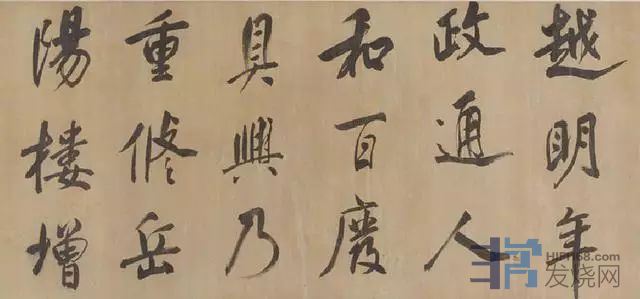 越明年
政通人
和百廢
具興乃
重修岳
陽樓增
HIFI168.com
发烧网